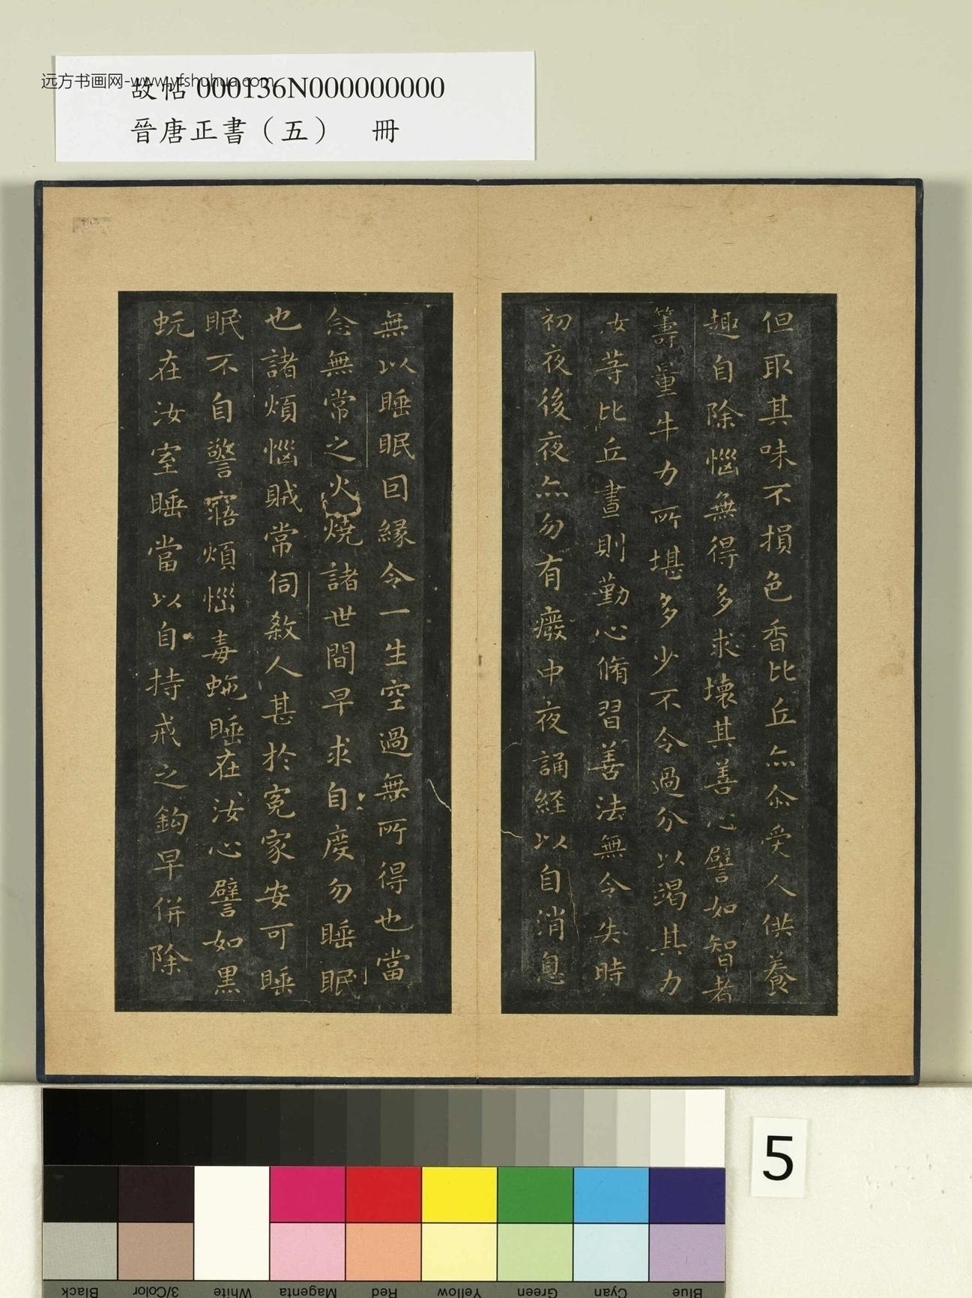 远方书画网-www.yfshuhua.com
故帖 000136N000000000
晉唐正書（五） 冊
但取其味不損色香比丘亦尒受人供養
趣自除惱無得多求壞其善心譬如智者
籌量牛力所堪多少不令過分以渴其力
汝等比丘晝則勤心脩習善法無令失時
初夜後夜亦勿有癈中夜誦経以自消息
無以睡眠回緣令一生空過無所得也當
念無常之火燒諸世間早求自度勿睡眠
也諸煩惱賊常伺煞人甚於寃家安可睡
眠不自警寤煩惱毒虵睡在汝心譬如黑
蚖在汝室睡當以自持戒之鈎早併除
5
Black
3/Color
White
Magenta
Red
Yellow
Green
Cyan
Blue